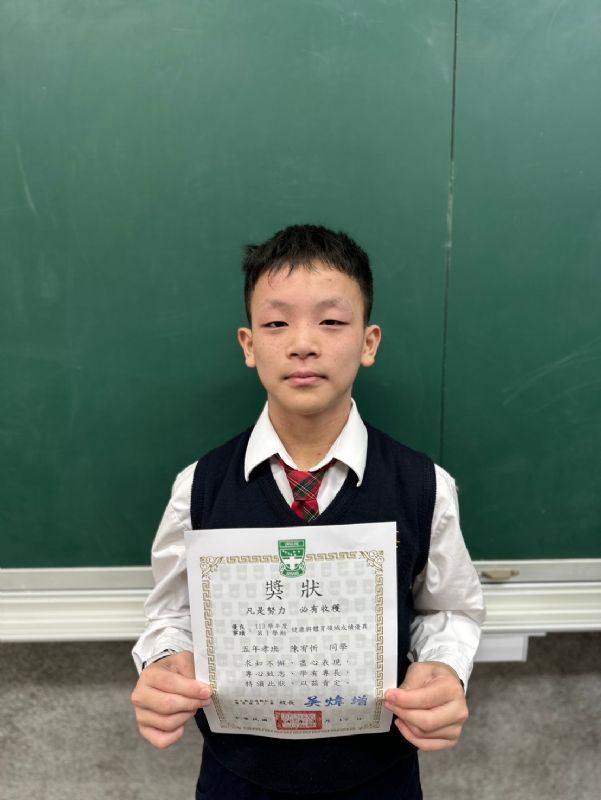 獎 狀
凡是努力 必有收穫
優良事蹟 113學年度第1學期 健康與體育領域成績優異
五年孝班 陳宥忻 同學
求知不懈，盡心表現，
專心致志，學有專長，
特頒此狀，以茲肯定。
校長 吳煒增
中華民國